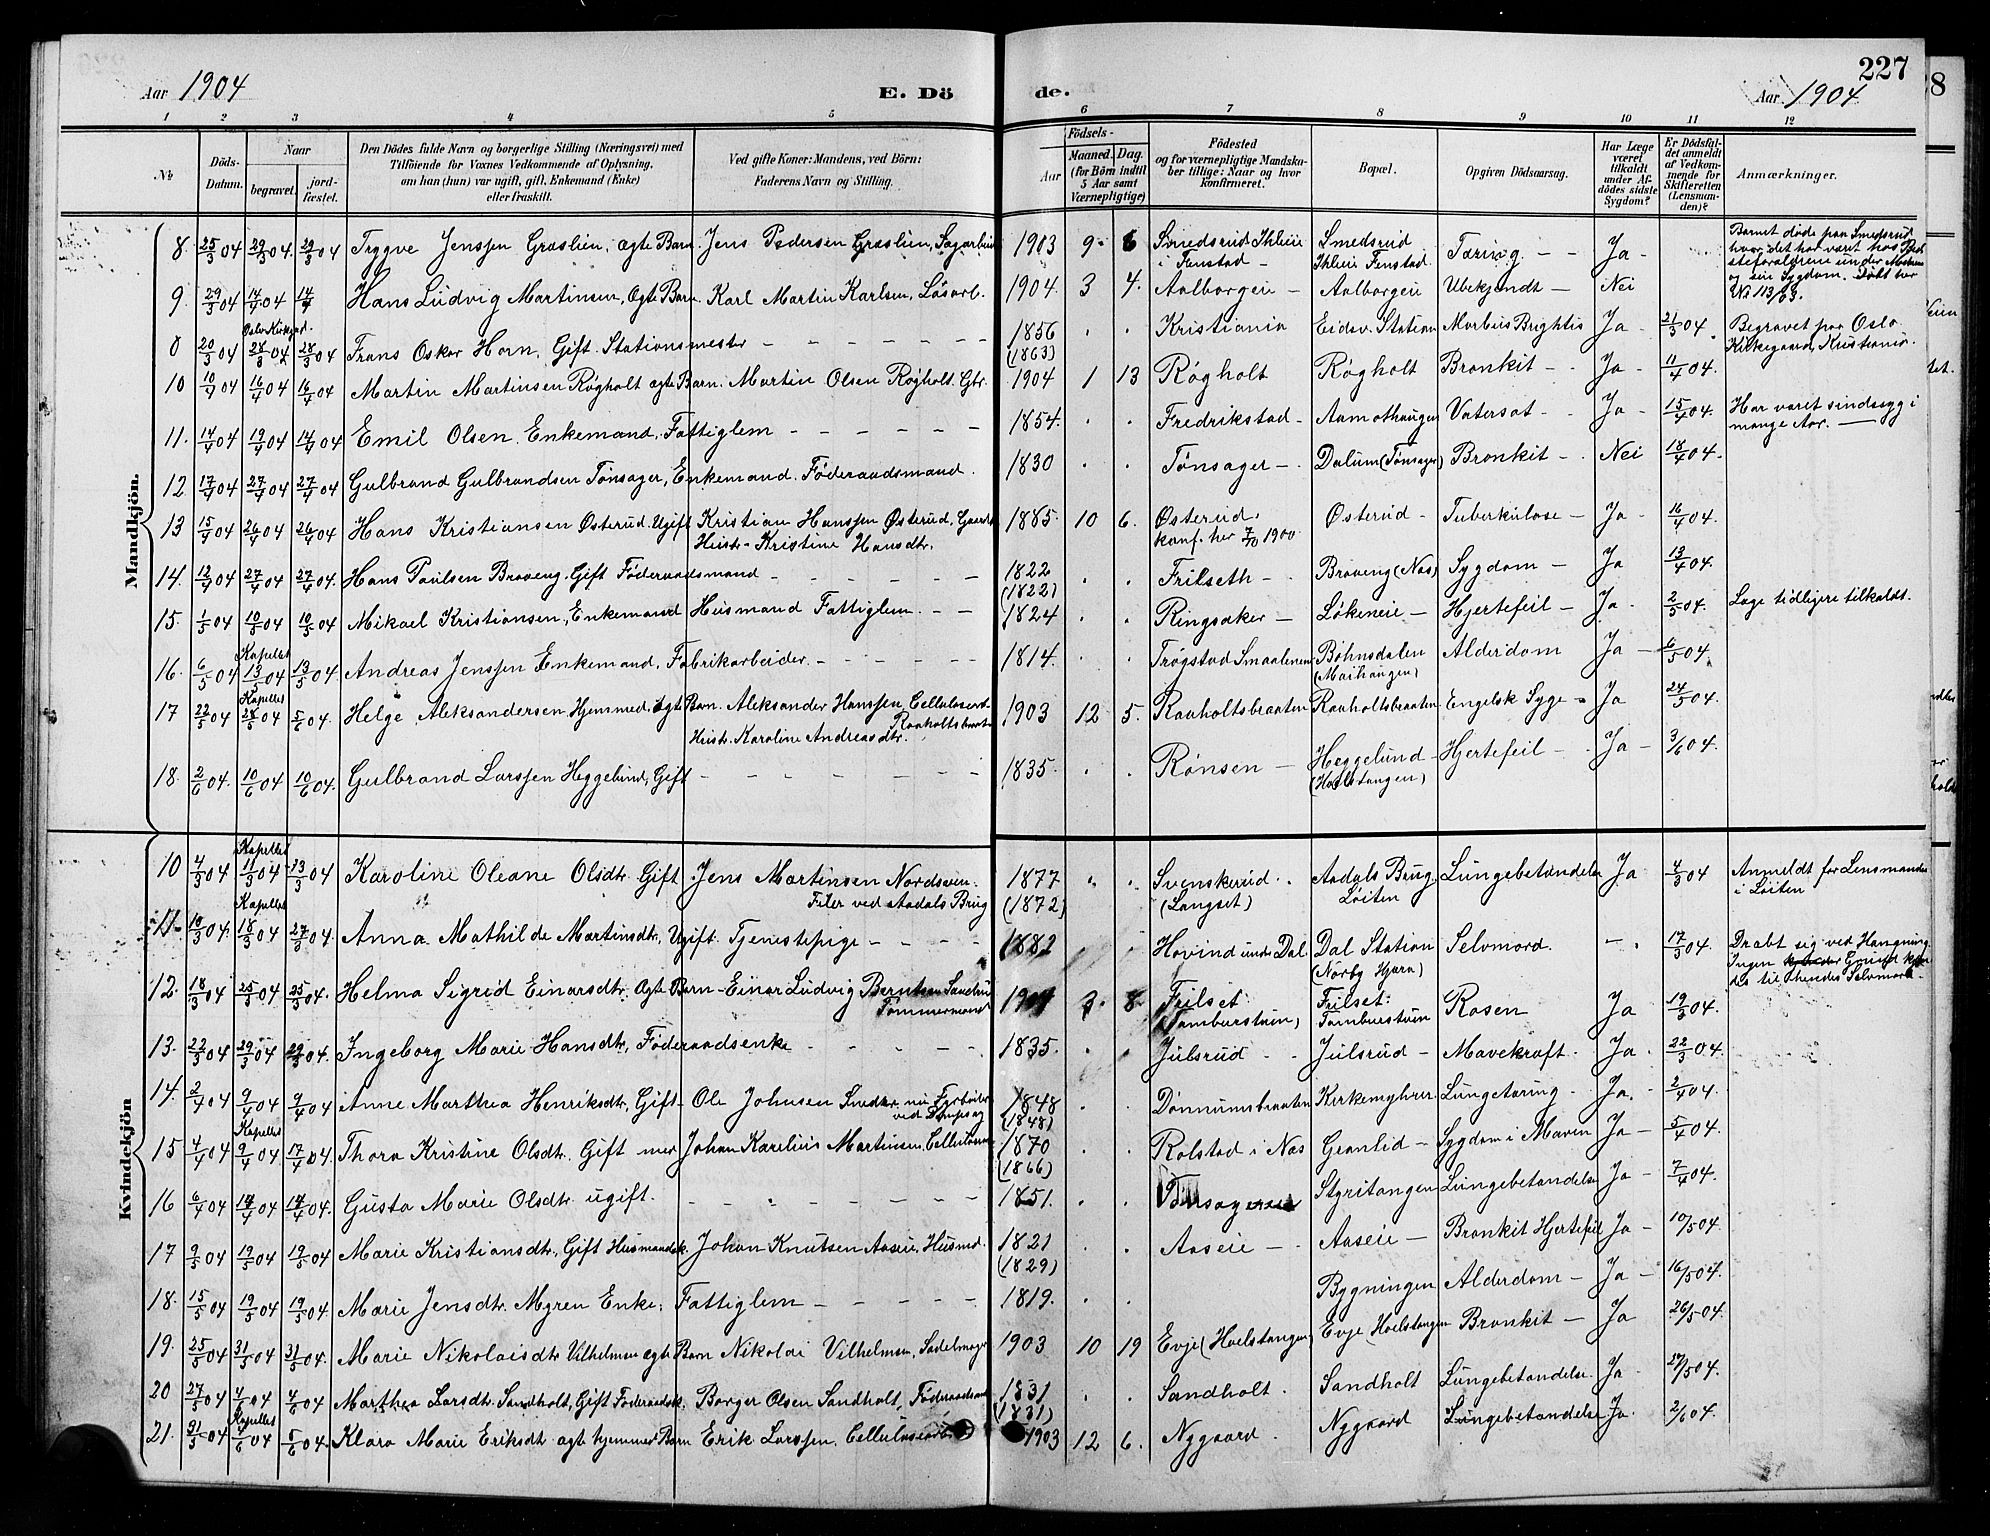 Aar 1904
E. Dö
de.
227
Aar 1904
1 2 3 4 5
6 7 8 9 10 11 12
№
Döds-Datum.
Naar
begravet.
jord-fæstet.
Den Dödes fulde Navn og borgerlige Stilling (Næringsvei) med
Tilföiende for Voxnes Vedkommende af Oplysning,
om han (hun) var ugift, gift, Enkemand (Enke)
eller fraskilt.
Ved gifte Koner: Mandens, ved Börn:
Faderens Navn og Stilling.
Födsels-
Aar
Maaned. Dag.
(for Börn indtil
5 Aar samt
Værnepligtige)
Födested
og for værnepligtige Mandska-
ber tillige: Naar og hvor
konfirmeret.
Bopæl.
Opgiven Dödsaarsag.
Har Læge
været
tilkaldt
under Af-
dödes sidste
Sygdom?
Er Dödsfal-
det anmeldt
af Vedkom-
mende for
Skifteretten
(Lensman-
den)?
Anmærkninger.
Mandkjön.
8 25/3 04 29/3 04. 29/3 04 Tryggve Jenssen Græslien, ægte Barn. Jens Pedersen Græslien, Sagarbeid 1903 9. 6 Smedsrud Ihleie i Fenstad - Smedsrud Ihleie Fenstad. Tæring - - Ja - Barnet døde paa Smedsrud hvor det har været hos Bed- steforældrene under og sin Sygdom. Døbt her No 113/03.
9. 29/3 04 14/4 04 14/4 Hans Ludvig Martinsen, Ægte Barn. Karl Martin Karlsen, Løsarb. 1904. 3 4. Aalborgeie - Aalborgeie Ubekjendt - Nei
8 20/3 04 Oslo Kirkegaard. 28/3 04 28/3 04 Frans Oskar Horn, Gift. Stationsmester - - - - - 1856 (1863) . . Kristiania Eidsv. Station Morbus Brightis Ja - 21/3 04 Begravet paa Oslo Kirkegaard, Kristiania.
10 10/4 04 16/4 04 16/4 04 Martin Martinsen Røgholt ægte Barn. Martin Olsen Røgholt. Gbr. 1904 1 13 Røgholt Røgholt Bronkit - Ja - 11/4 04.
11. 14/4 04 19/4 04 14/4 04 Emil Olsen. Enkemand. Fattiglem - - - - - 1854. . . Fredrikstad - Aamothaugen Vatersot - Ja - 15/4 04. Har været sindssyg i mange Aar.
12 17/4 04 27/4 04 27/4 04 Gulbrand Gulbrandsen Tønsager, Enkemand. Føderaadsmand. 1830 . . Tønsager - Dalum (Tønsager) Bronkit - Nei 18/4 04.
13 15/4 04 26/4 04 26/4 04 Hans Kristiansen Østerud. Ugift Kristian Hanssen Østerud, Gaardb. Hustr. Kristine Hansdtr. 1885. 10 6. Østerud. konf. her 7/10 1900 Østerud - Tuberkulose - Ja - 16/4 04.
14. 12/4 04 27/4 04 27/4 04. Hans Paulsen Braveng. Gift Føderaadsmand - - - - 1822 (1822) . . Frilseth - Braveng (Nas) Sygdom - Ja 13/4 04.
15. 1/5 04 10/5 04 10/5 04. Mikael Kristiansen, Enkemand Husmand Fattiglem. - - 1824 . . Ringsaker - Løkeneie - Hjertefeil - Ja - 2/5 04. Læge tidligere tilkaldt.
16. 6/5 04 Kapellet 13/5 04 13/5 04 Andreas Jenssen Enkemand, Fabrikarbeider. - - - 1814. . . Trøgstad Smaalenene Bøhnsdalen (Maihaugen) Alderdom Ja - 6/5 04.
17 22/5 04 Kapellet 28/5 04 5/6 04. Helge Aleksandersen, Hjemmed. Ægte Barn. Aleksander Hanssen, Cellulosearb. Raaholtsbraaten Hustr. Karoline Andreasdtr. 1903 12 5. Raaholtsbraaten Raaholtsbraaten Engelsk Syge - Ja 24/5 04.
18. 2/6 04. 10/6 04 10/6 04. Gulbrand Larssen Heggelund, Gift - - - - - 1835. . . Rønsen - Heggelund (Hoelstangen) Hjertefeil - Ja - 3/6 04.
Kvindekjön
10 4/3 04 Kapellet 11/3 04 13/3 04 Karoline Oleane Olsdtr. Gift. Jens Martinsen Nordsveen. Filer ved Aadals Brug 1877 (1872) . . Svenskerud. (Langset) Aadals Brug. Løiten Lungebetændelse Ja 4/3 04 Anmeldt for Lensmanden i Løiten
11 10/3 04. Kapellet 18/3 04 27/3 04. Anna Mathilde Martinsdtr, Ugift. Tjenestepige - - - 1882 . Hovind under Dal Dal Station (Nørby Hjørn) Selvmord. - . 17/3 04. Dræbt sig ved Hængning. Ingen Grund des til hendes Selvmord.
12. 18/3 04 25/3 04 25/3 04. Helma Sigrid Einarsdtr. Ægte Barn - Einar Ludvig Berntsen Tømmermand 3. 8 Frilset (Tamburstuen) Frilset: Tamburstuen Rosen Ja 19/3 04.
13. 22/3 04 29/3 04 29/3 04. Ingeborg Marie Hansdtr, Føderaadsenke - - - - 1835. . Julsrud - Julsrud - Mavekræft. Ja. 22/3 04.
14. 2/4 04 9/4 04 9/4 04 Anne Marthea Henriksdtr, Gift - Ole Johnsen Snedker nu Fyrbøder ved Dampsag 1848 (1848) . Dønnumsbraaten Kirkemyhren Lungetæring - Ja. 2/4 04.
15 4/4 04 Kapellet 9/4 04 17/4 04. Thora Kristine Olsdtr. Gift med Johan Karelius Martinsen, Cellulose 1870 (1866) . Rolstad i Nas Granlid - Sygdom i Maven Ja - 5/4 04.
16 6/4 04 14/4 04 14/4 04. Gusta Marie Olsdtr. ugift. - - - - - 1851. . . Styritangen Lungebetændelse Ja - 7/4 04.
17 9/5 04 19/5 04 19/5 04 Marie Kristiansdtr, Gift Husmandsk. Johan Knutsen Aaseie, Husmd. 1821 (1829) . . Aaseie - Aaseie - Bronkit Hjertefeil Ja - 10/5 04.
18. 15/5 04 19/5 04 19/5 04. Marie Jensdtr. Myren Enke, Fattiglem - - - - - 1819. . . Bygningen Alderdom - Ja - 16/5 04.
19. 25/5 04 31/5 04 31/5 04. Marie Nikolaisdtr Vilhelmsen ægte Barn Nikolai Vilhelmsen, Sadelmager 1903 10 19 Evje (Hoelstangen) Evje Hoelstangen Bronkit - Ja 26/5 04.
20 27/5 04 4/6 04 4/6 04 Marthea Larsdtr. Sandholt, Gift Føderaadsk. Borger Olsen Sandholt, Føderaadsm 1831 (1831) . . Sandholt. Sandholt Lungebetændelse. Ja 27/5 04.
21. 31/5 04 Kapellet 4/6 04 5/6 04. Klara Marie Eriksdtr ægte hjemmed Barn Erik Larssen, Cellulosearb. 1903 12 6. Nygaard. Nygaard Lungebetændelse Ja. 2/6 04.